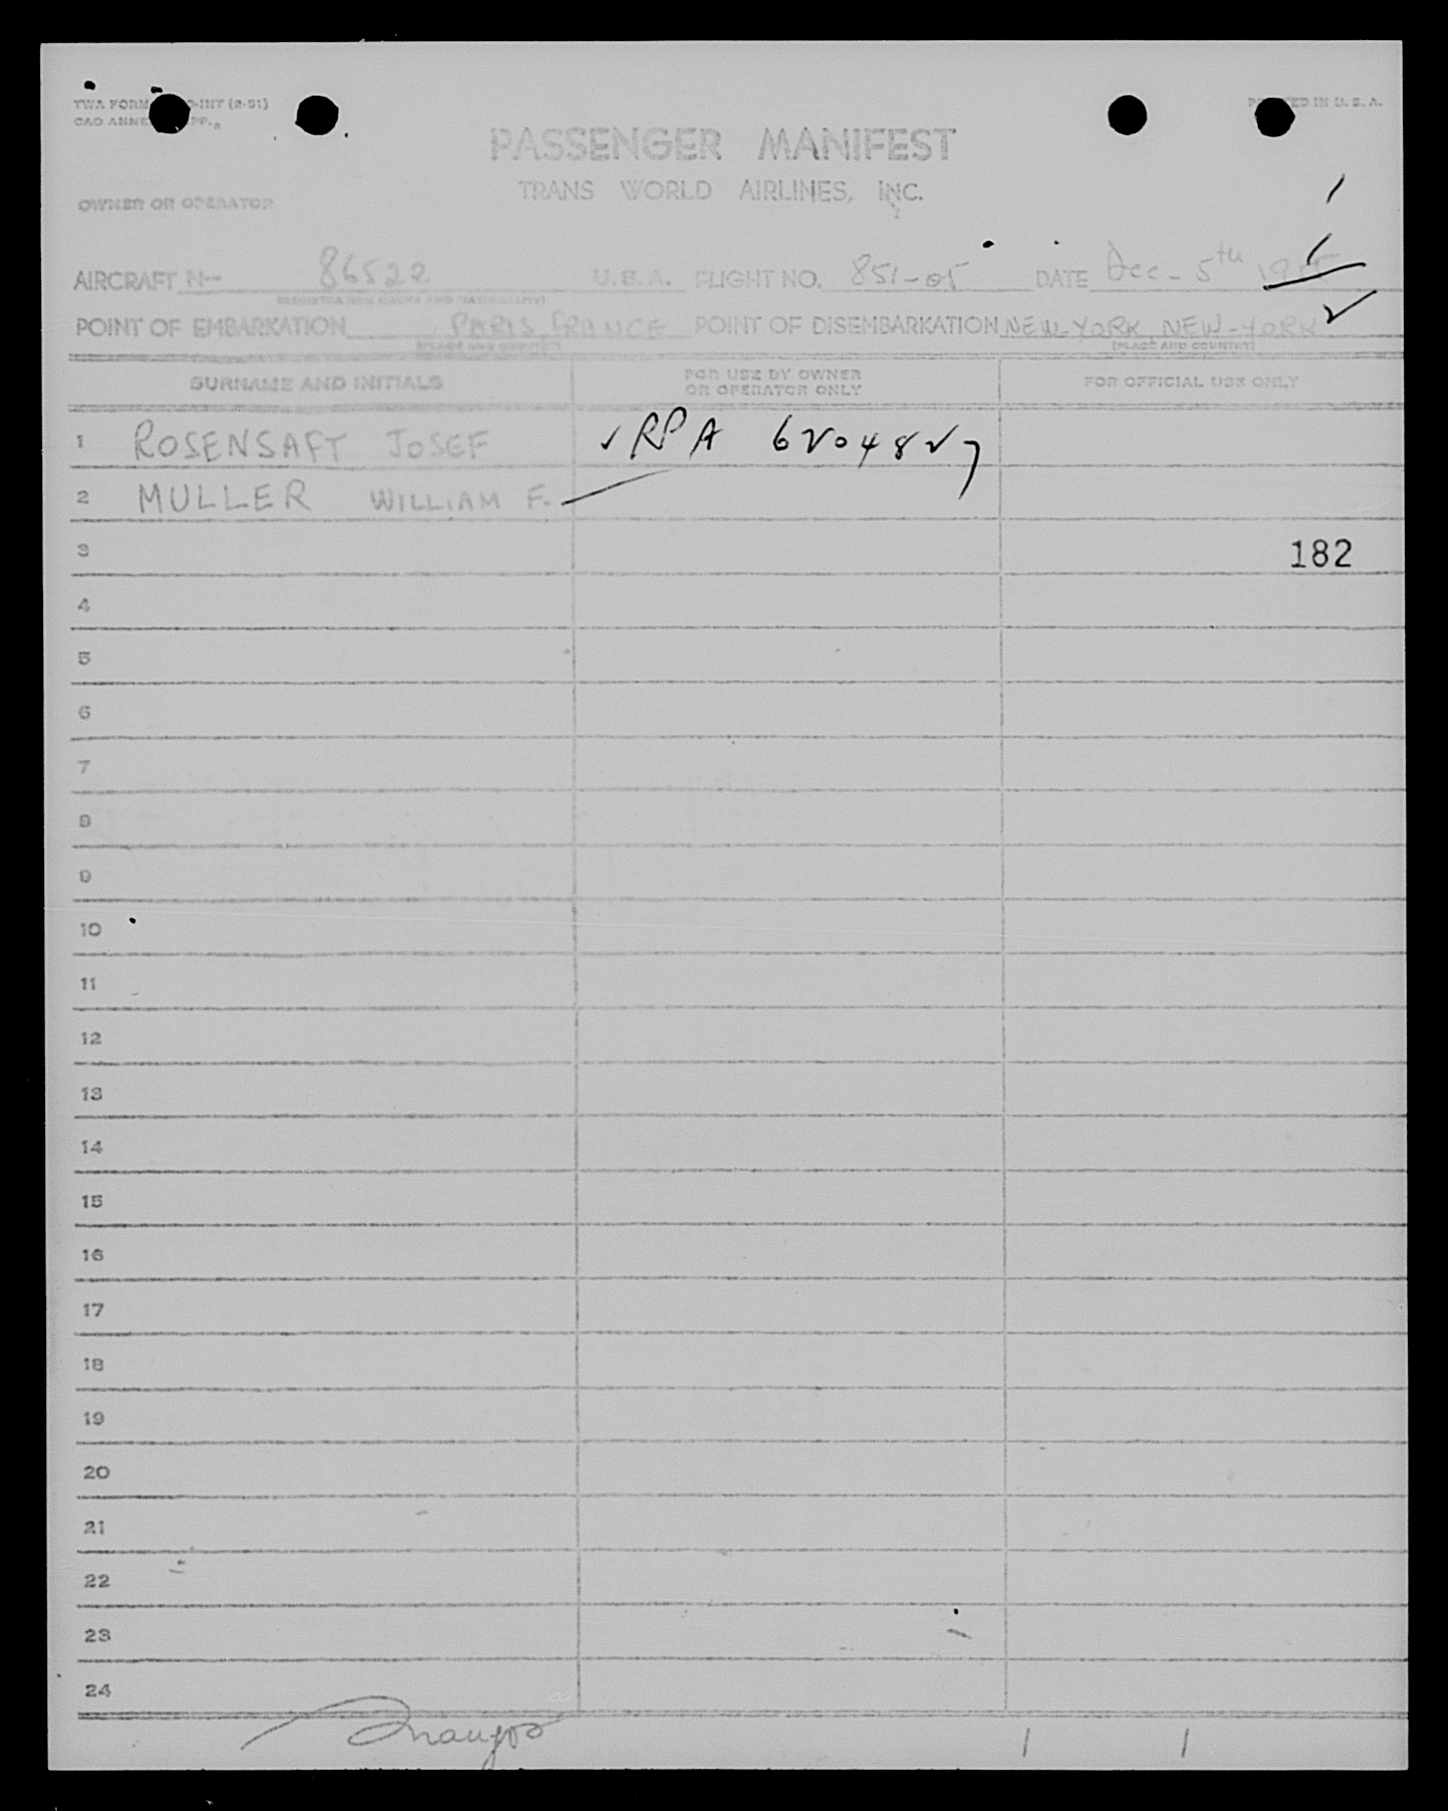 TWA FORM O-INT (2-51)
PRINTED IN U. S. A.
CAO ANNE PP.
PASSENGER MANIFEST
TRANS WORLD AIRLINES, INC.
OWNER OR OPERATOR
AIRCRAFT N- 86522 U.S.A. FLIGHT NO. 851-05 DATE Dec- 5th
(REGISTRATION MARKS AND NATIONALITY)
POINT OF EMBARKATION PARIS FRANCE POINT OF DISEMBARKATION NEW-YORK, NEW-YORK
(PLACE AND COUNTRY) (PLACE AND COUNTRY)
SURNAME AND INITIALS FOR USE BY OWNER OR OPERATOR ONLY FOR OFFICIAL USE ONLY
1 ROSENSAFT JOSEF ✓ RPA
2 MULLER WILLIAM F.
3 182
4
5
6
7
8
9
10
11
12
13
14
15
16
17
18
19
20
21
22
23
24